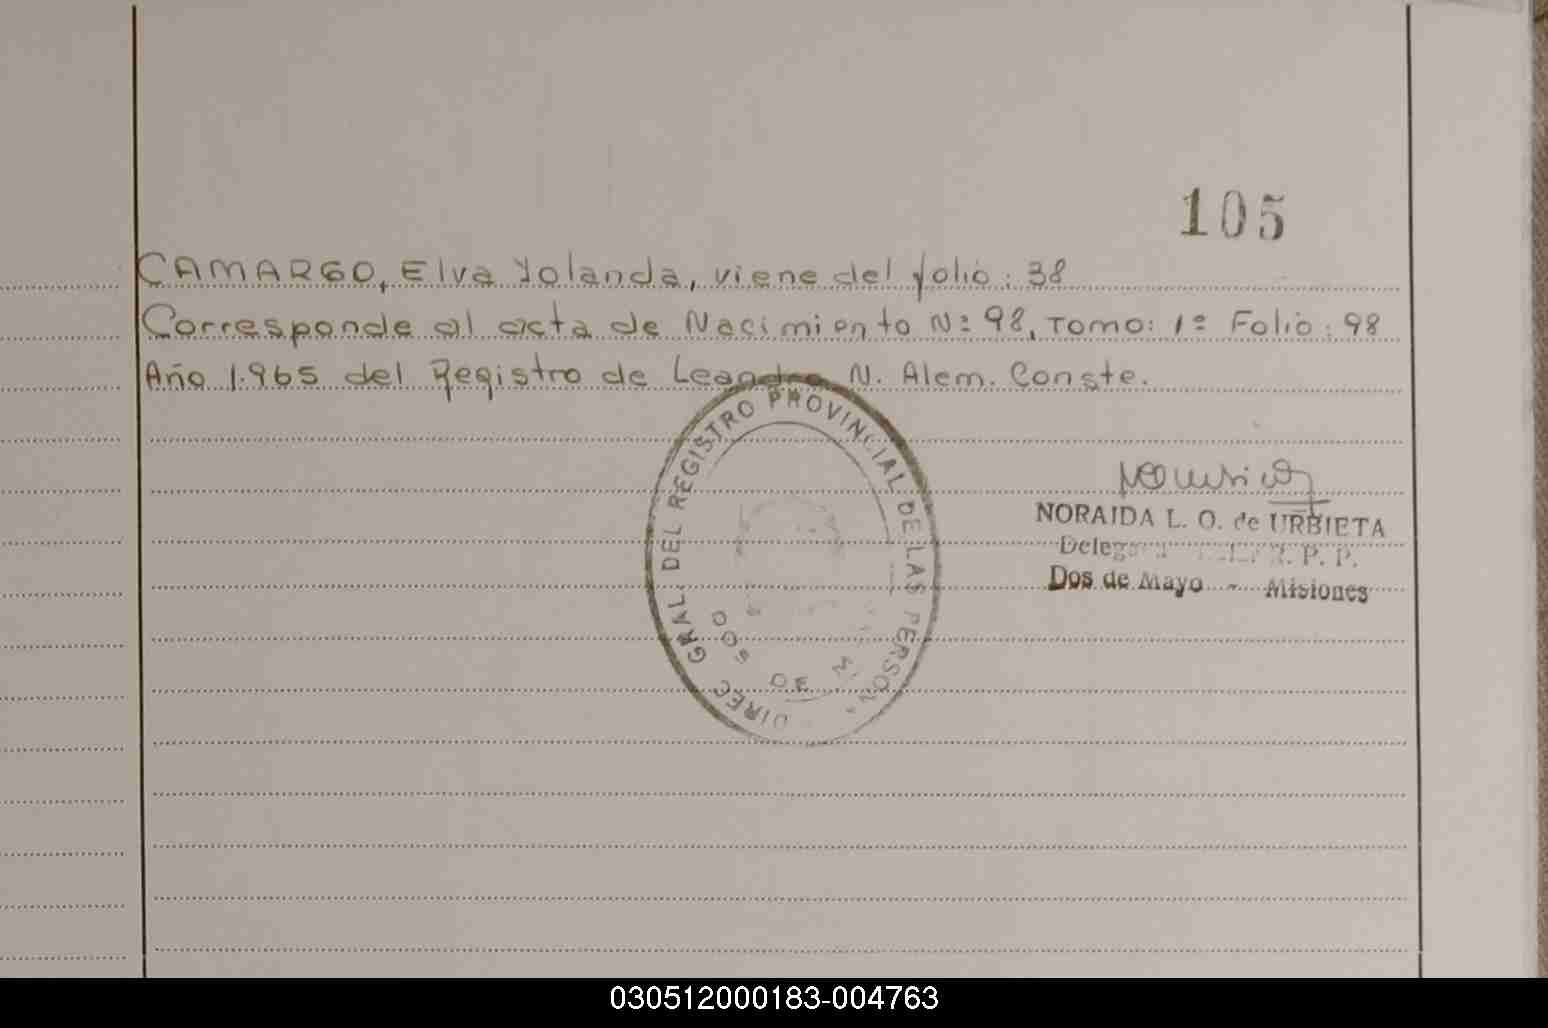 105
CAMARGO, Elva Yolanda, viene del folio: 38
Corresponde al acta de Nacimiento Nº 98, Tomo: 1º Folio: 98
Año 1.965 del Registro de Leandro N. Alem. Conste.
DIREC GRAL. DEL REGISTRO PROVINCIAL DE LAS PERSON
DOS DE M
NORAIDA L. O. de URBIETA
R. P. P.
Dos de Mayo - Misiones
030512000183-004763